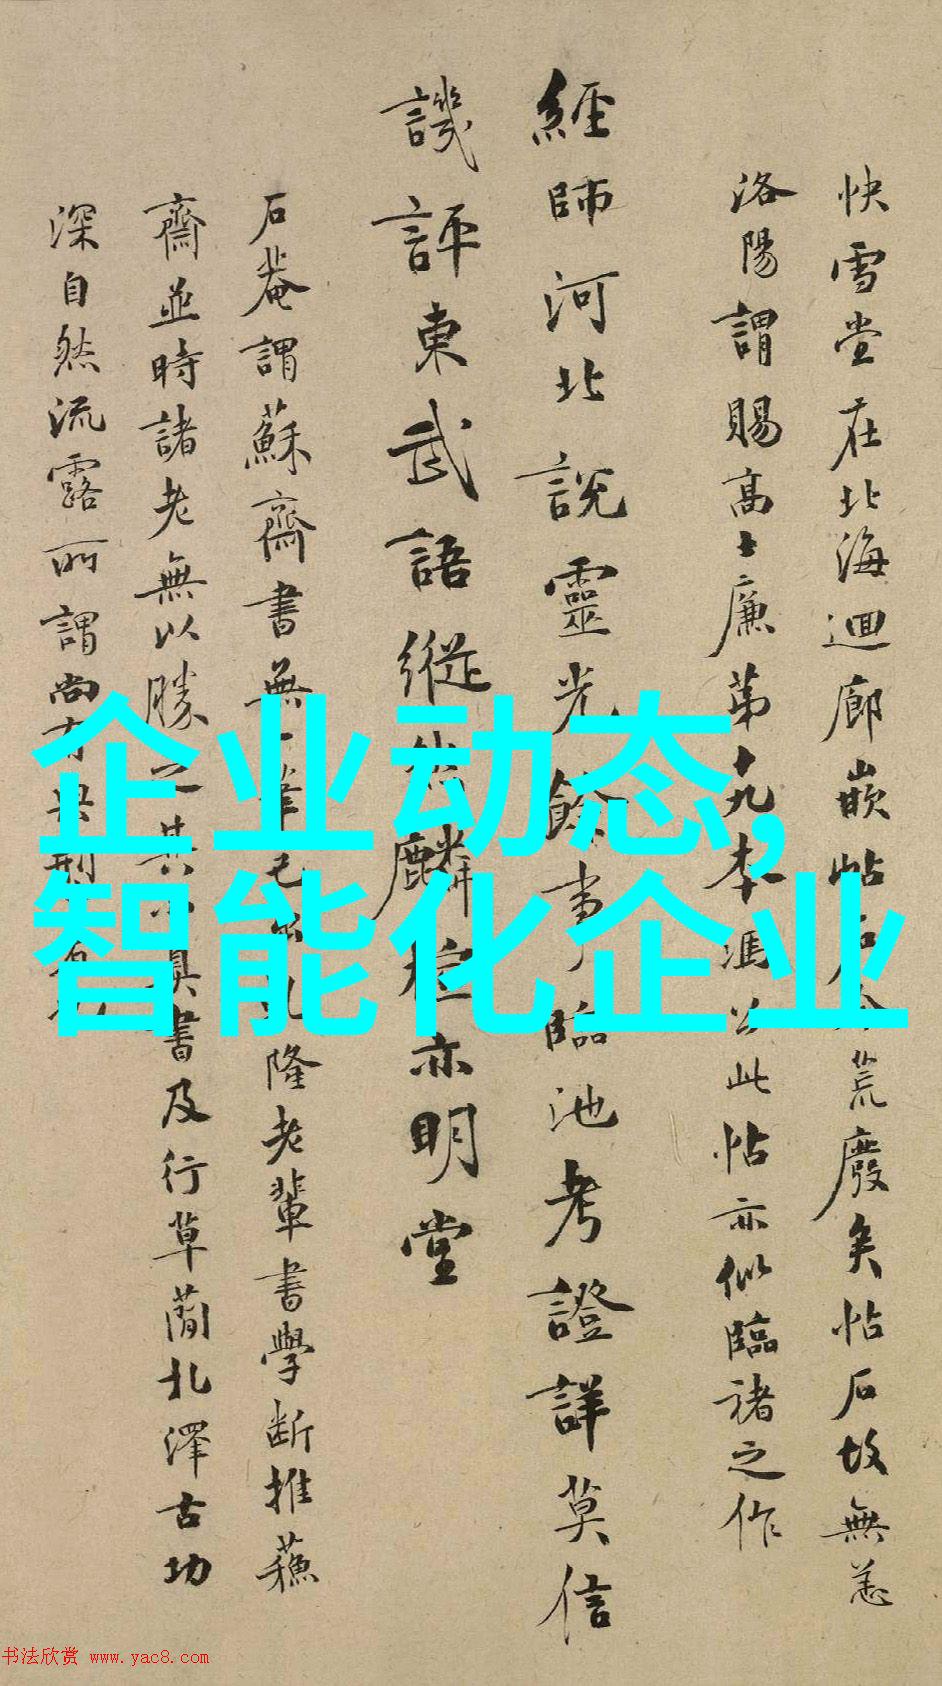 快雪堂在北海迴廊嵌帖石今荒廢矣帖石故無恙
洛陽謂賜高士廉第十九本馮公此帖亦似臨褚之作
經師河北說靈光餘事臨池考證詳莫信
譏評東武語縱然麟楦亦明堂
石菴謂蘇齋書無一筆己出乾隆老輩書學斷推蘓
齋並時諸老無以勝之其小真書及行草蘭北澤古功
深自然流露所謂尚有典刑
企业动态,
智能化企业
书法欣赏 www.yac8.com